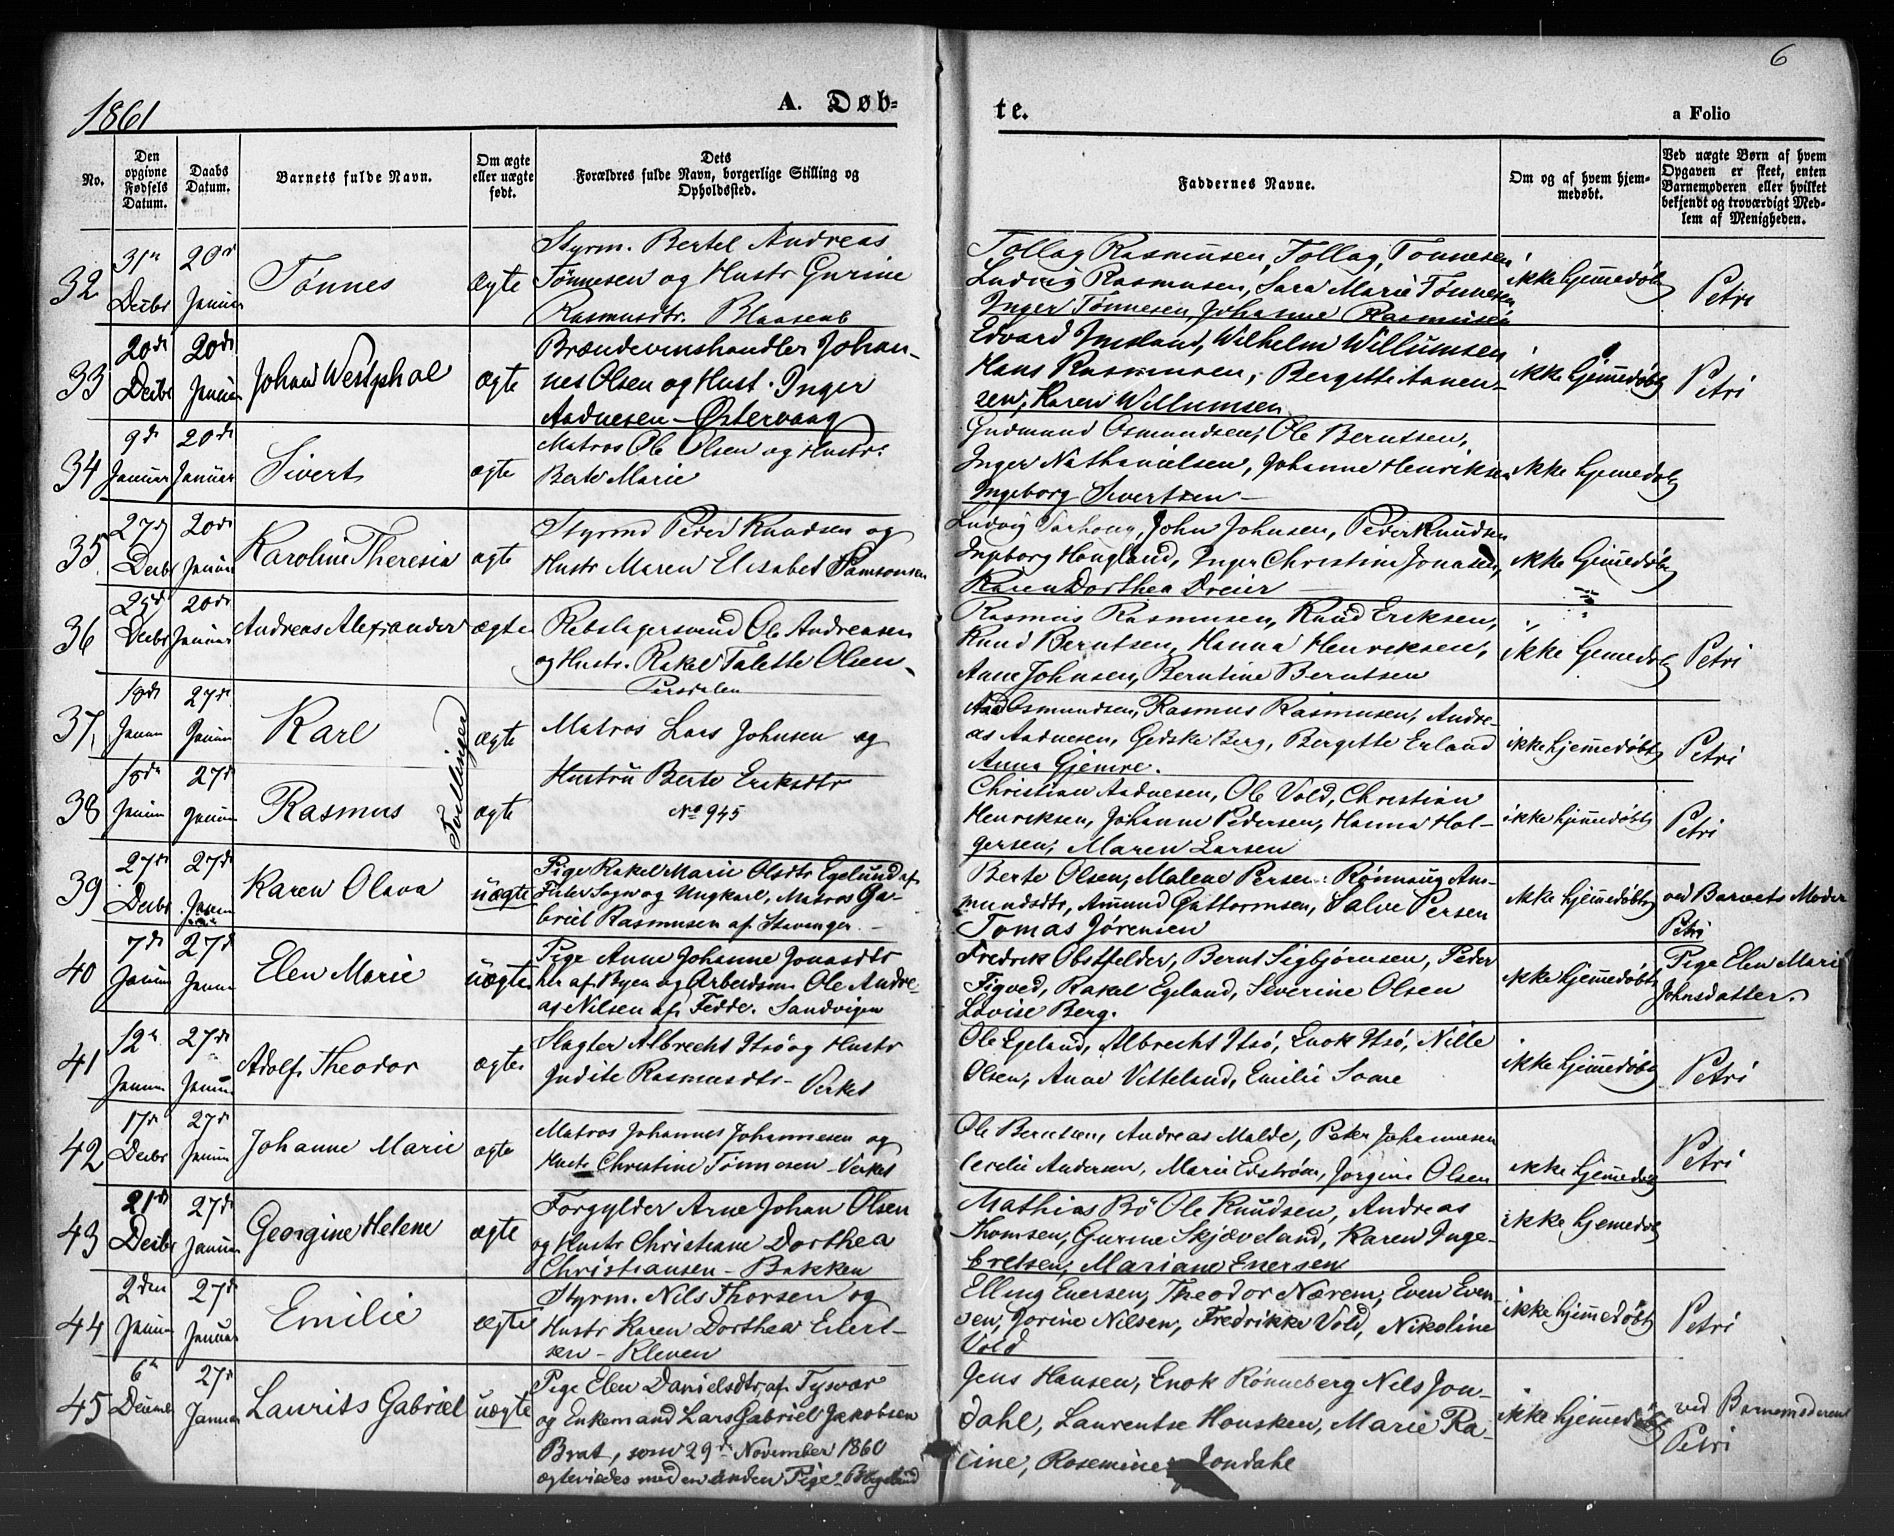 6
1861
A. Døb-
te.
a Folio
No.
Den opgivne Fødsels Datum.
Daabs Datum.
Barnets fulde Navn.
Om ægte eller uægte født.
Dets Forældres fulde Navn, borgerlige Stilling og Opholdssted.
Faddernes Navne.
Om og af hvem hjem-medøbt.
Ved uægte Børn af hvem Opgaven er skeet, enten Barnemoderen eller hvilket bekjendt og troværdigt Med-lem af Menigheden.
32 31te Decbr 20de Januar Tønnes ægte
Styrm. Bertel Andreas
Tønnesen og Hustr Gurine
Rasmusdtr. Blaasenb
Tollag Rasmussen, Tollag Tønnesen
Ludvig Rasmussen, Sara Marie Tønnesen
Inger Tønnesen, Johanne Rasmussen
ikke hjemmedøbt Petri
33 20de Decbr 20de Januar Johan Westphal ægte
Brændevinshandler Johan-
nes Olsen og Hust. Inger
Aadnesen - Østervaag
Edvard Imsland, Wilhelm Willumsen
Hans Rasmussen, Bergitte Hanen-
sen, Karen Willumsen
ikke hjemmedøbt Petri
34 9de Januar 20de Januar Sivert ægte
Matros Ole Olsen og Hustr.
Berte Marie
Gudmund Osmundsen, Ole Berntsen,
Inger Nathanielsen, Johanne Henriksen
Ingeborg Sivertsen
ikke hjemedøbt
35 27de Decbr 20de Januar Karoline Theresia ægte
Styrmd Peder Knudsen og
Hustr Maren Elisabet Samsonsen
Ludvig Varhoug, John Johnsen, Peder Knudsen
Ingeborg Hougland, Inger Christine Jonasen,
Karen Dorthea Dreier
ikke hjemmedøbt
36 25de Decbr 20de Januar Andreas Alexander ægte
Rebslagersvend Ole Andreasen
og Hustr. Rakel Talette Olsen
Persdalen
Rasmus Rasmussen, Knud Eriksen,
Knud Berntsen, Hanna Henriksen,
Anne Johnsen, Berntine Berntsen
ikke hjemedøbt Petri
37, 10de Januar 27de Januar Karl ægte
Tvillinger
Matros Lars Johnsen og
Aad Osmundsen, Rasmus Rasmussen, Andre-
as Aadnesen, Gidske Berg, Bergitte Erland
Anna Gjemre.
ikke hjemmedøbt Petri
38 10de Januar 27 Januar Rasmus ægte
Hustru Berte Eriksdtr
No 945
Christian Aadnesen, Ole Vold, Christian
Henriksen, Johanne Pedersen, Hanna Hol-
gersen, Maren Larsen
ikke hjemmedøbt Petri
39 27de Decbr 27de Januar Karen Olava uægte
Pige Rakel Marie Olsdtr Egelund af
Sogn og Ungkarl, Matros Ga-
briel Rasmussen af Stavanger.
Berte Olsen, Malene Persen, Rønnaug Am-
mundsdtr, Amund Guttormsen, Salve Persen
Tomas Jørensen
ikke hjemmedøbt ved Barnets Moder
Petri
40 7de Januar 27de Januar Elen Marie uægte
Pige Anne Johanne Jonasdtr
her af Byen og Arbeidsm Ole Andre-
as Nilsen af Fedde. Sandvigen
Fredrik Obstfelder, Bernt Sigbjørnsen, Peder
Figved, Rakel Egeland, Severine Olsen
Lovise Berg.
ikke hjemmedøbt Pige Elen Marie
Johnsdatter.
41 12te Januar 27de Januar Adolf Theodor ægte
Slagter Albrecht Itsø og Hustr
Judite Rasmusdtr - Verket
Ole Egeland, Albrecht Itsø, Enok Itsø, Nille
Olsen, Anne Vetteland, Emilie Some
ikke hjemmedøbt Petri
42 17de Decbr 27de Januar Johanne Marie ægte
Matros Johannes Johannesen og
Hustr Christine Tønnesen - Verket
Ole Berntsen, Andreas Malde, Peter Johannesen
Cecelie Andersen, Marie Edstrøm, Jørgine Olsen
ikke hjemmedøbt Petri
43 21de Decbr 27de Januar Georgine Helene ægte
Forgylder Arne Johan Olsen
og Hustr Christiane Dorthea
Christiansen - Bakken
Mathias Bø Ole Knudsen, Andreas
Thomsen, Gurine Skjæveland, Karen Inge-
bretsen, Mariane Enersen
ikke hjemedøbt
44 2den Januar 27de Januar Emilie ægte
Styrm. Nils Thorsen og
Hustr Karen Dorthea Eilert-
sen - Kleven
Elling Enersen, Theodor Nærem, Even Even-
sen, Gorine Nilsen, Fredrikke Vold, Nikoline
Vold
ikke hjemmedøbt Petri
45 6te 27de Januar Laurits Gabriel uægte
Pige Elen Danielsdtr, af Tysvær
og Enkemand Lars Gabriel Jakobsen
Brat, som 29de November 1860
ægteviedes med en anden Pige
Jens Hansen, Enok Rønneberg Nils Jon-
dahl, Laurentse Housken, Marie Ra-
cine, Rosemine Jondahl
ikke hjemmedøbt ved Barnemoderen
Petri